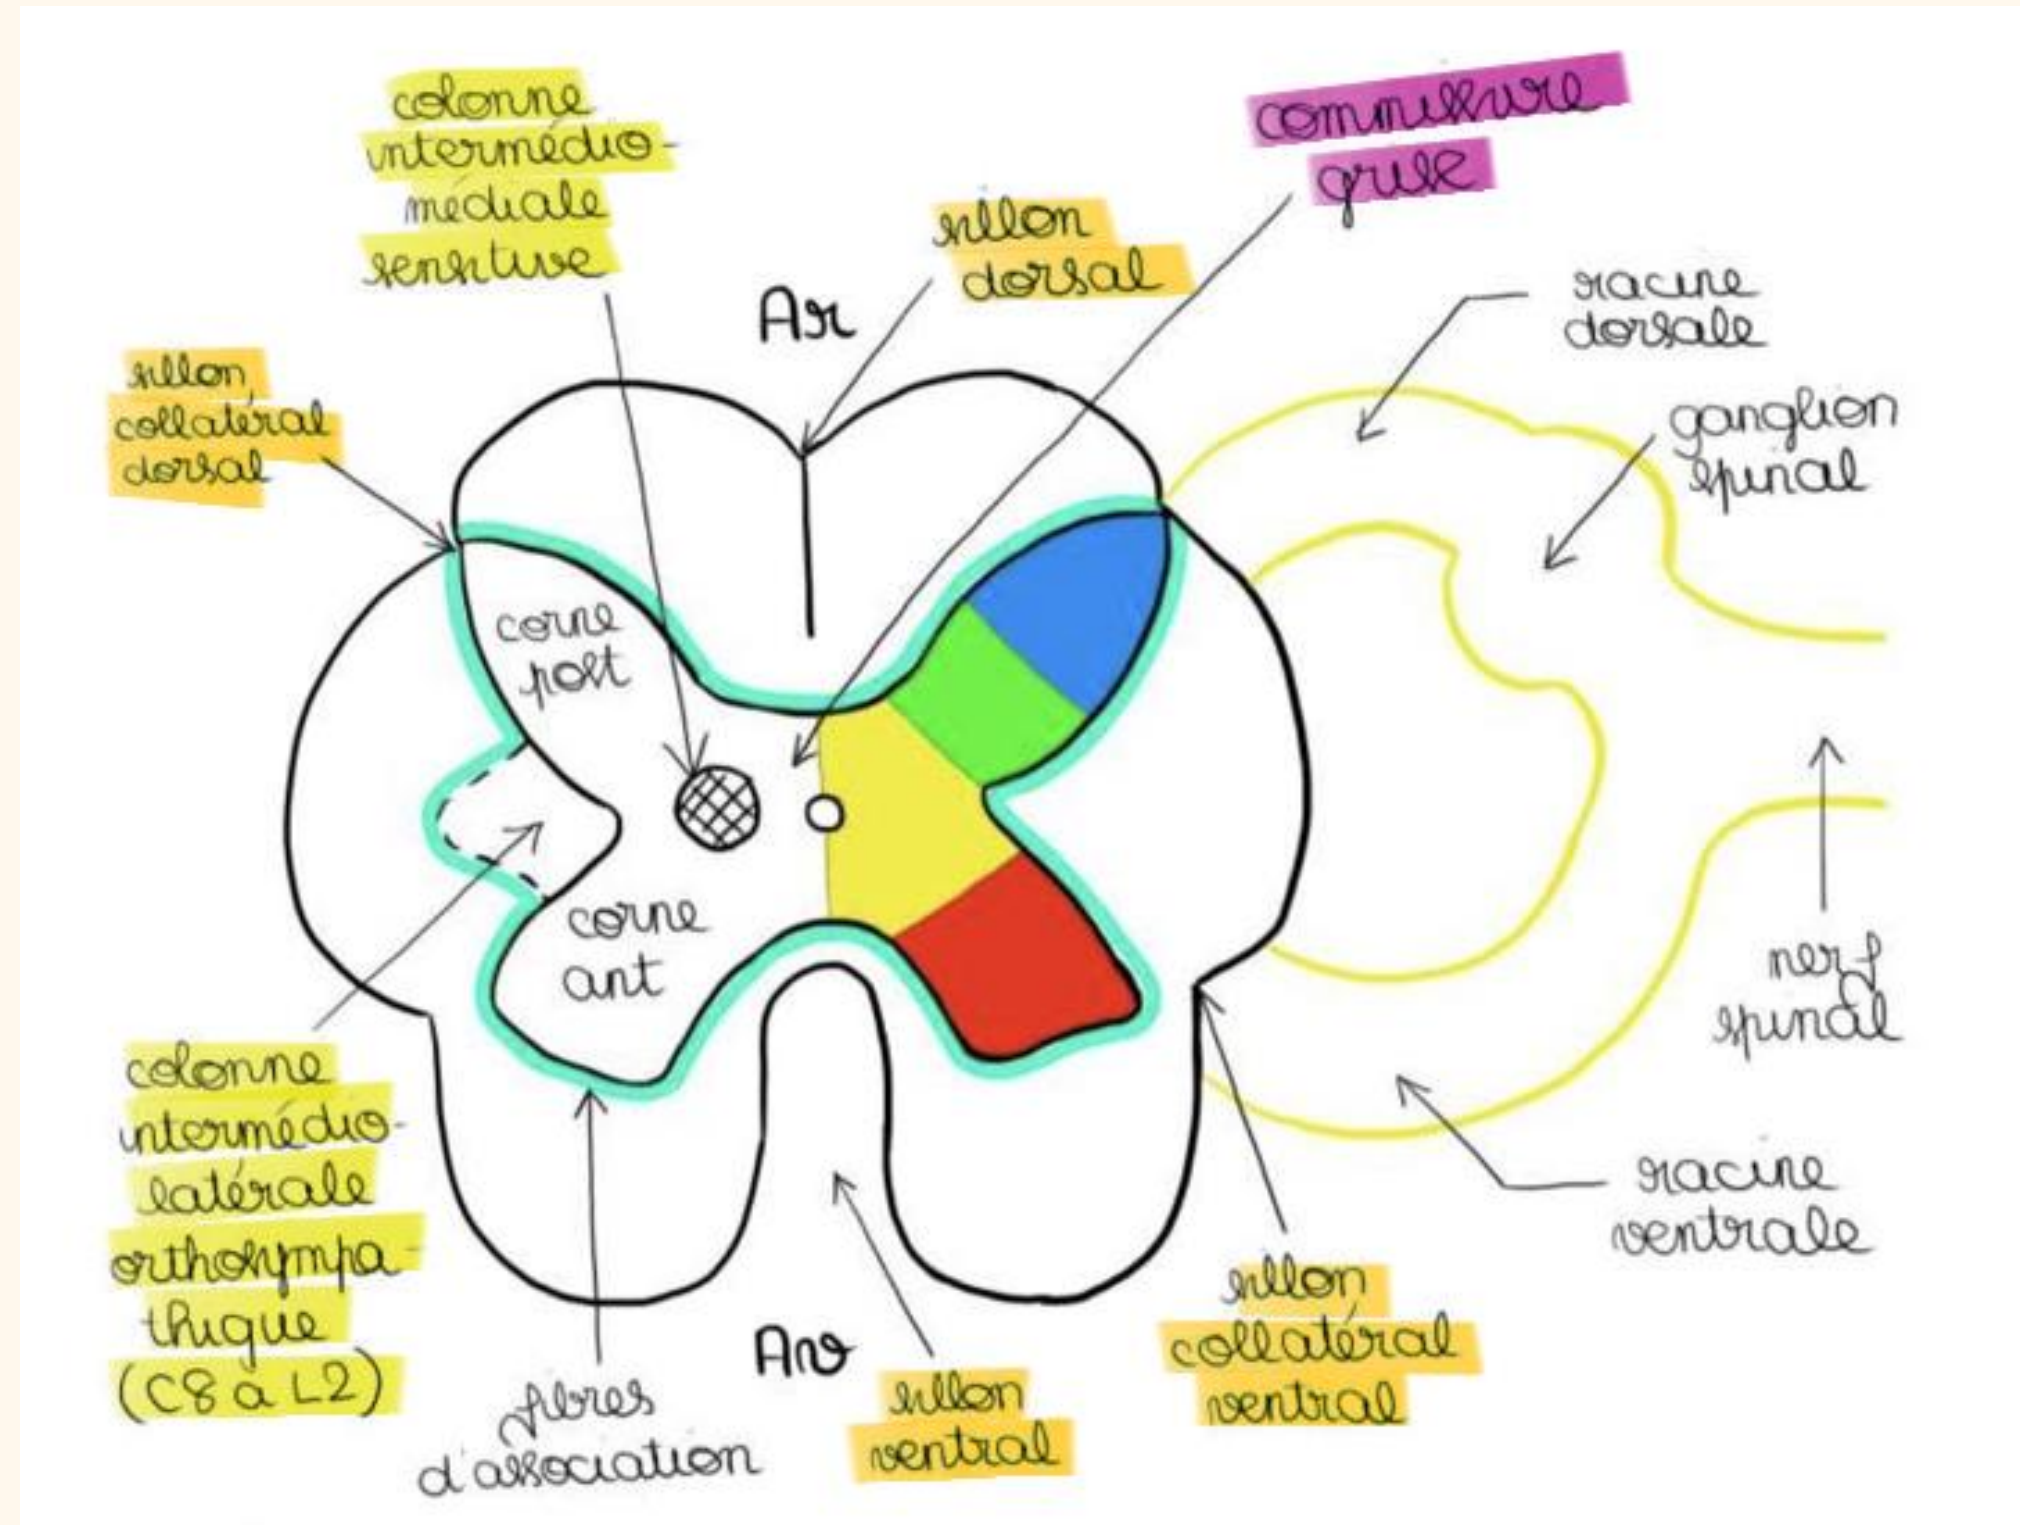 colonne
intermédio-
médiale
sensitive
commissure
grise
sillon
dorsal
Ar
racine
dorsale
sillon
collatéral
dorsal
ganglion
spinal
corne
post
corne
ant
nerf
spinal
colonne
intermédio-
latérale
orthosympa-
thique
(C8 à L2)
racine
ventrale
sillon
collatéral
ventral
Av
sillon
ventral
fibres
d'association